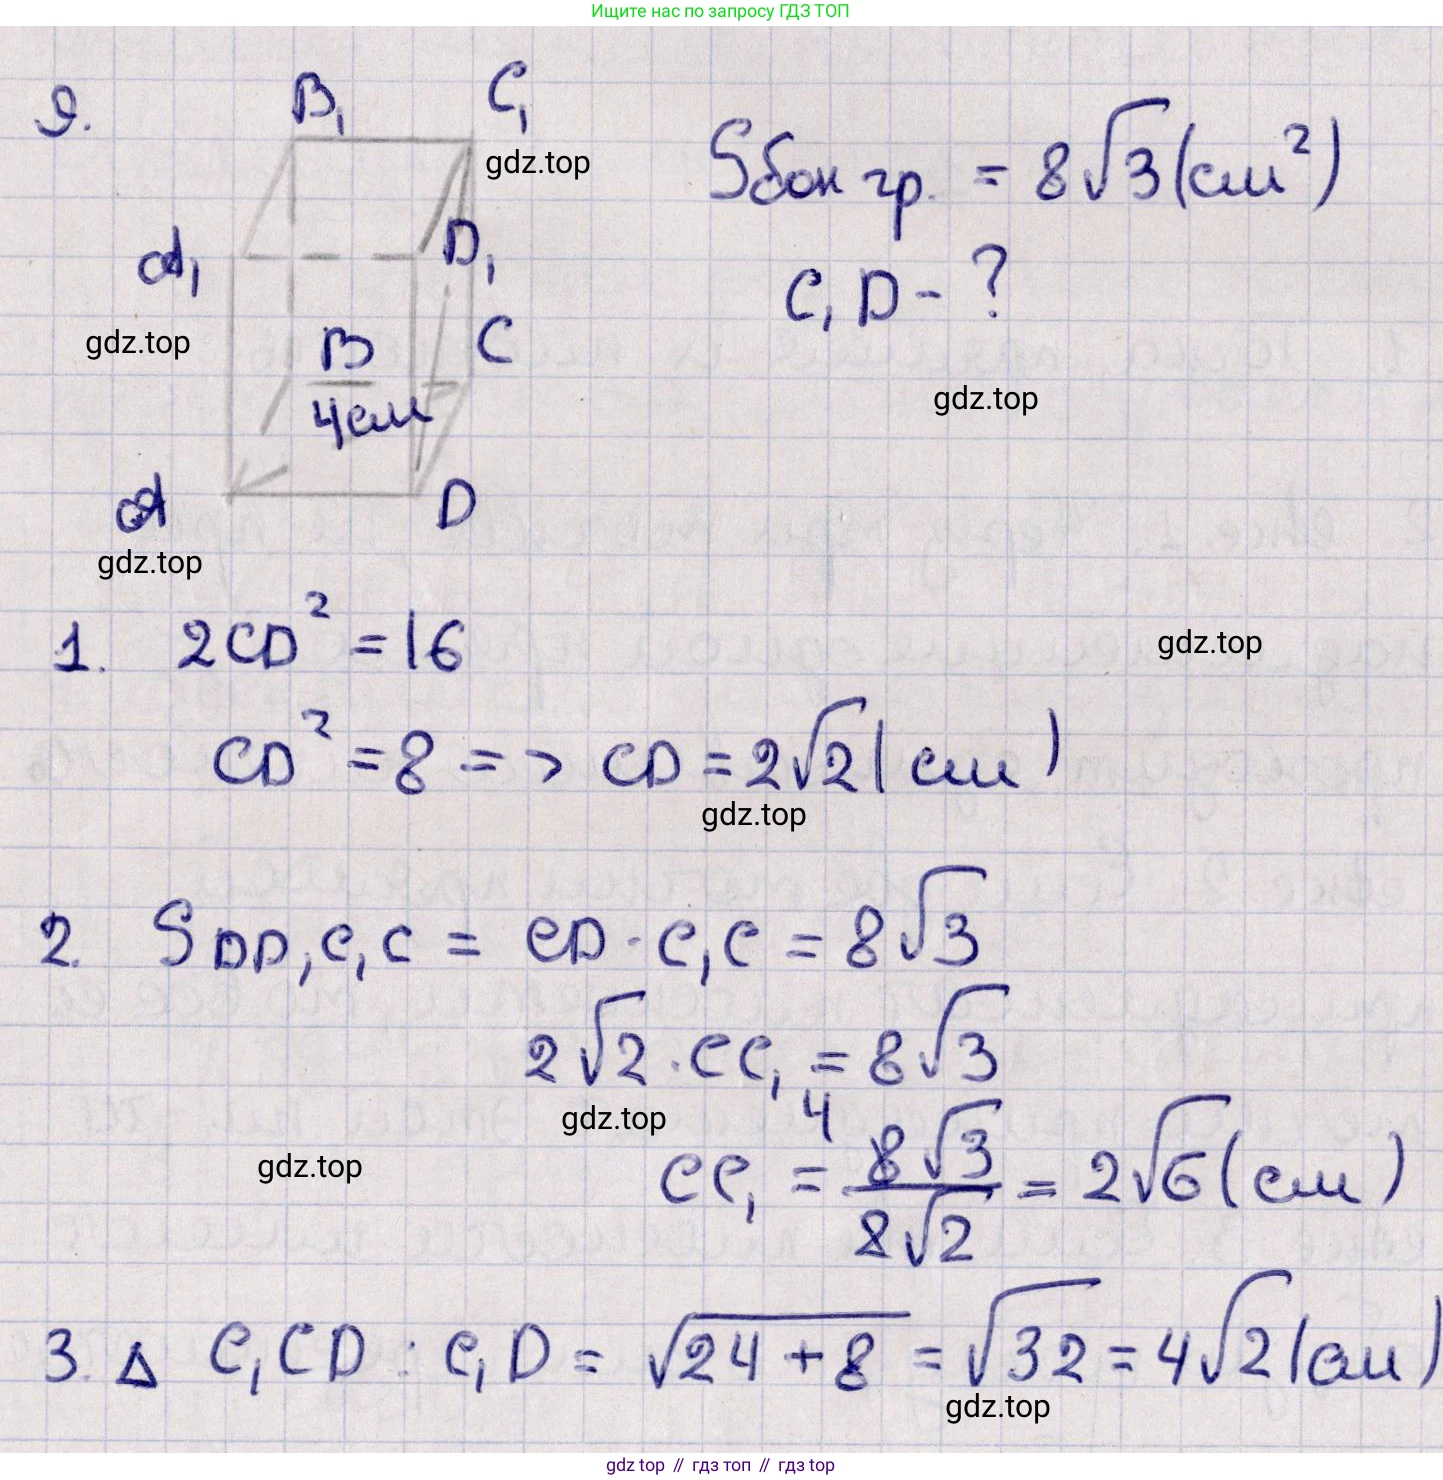 Ищите нас по запросу ГДЗ ТОП
9.
B₁ C₁
gdz.top
A₁ D₁
gdz.top
B C
4см
A D
gdz.top
Sбок гр. = 8√3 (см²)
C₁D - ?
gdz.top
1. 2CD² = 16
gdz.top
CD² = 8 => CD = 2√2 (см)
gdz.top
2. S DD₁C₁C = CD · C₁C = 8√3
2√2 · CC₁ = 8√3
gdz.top
gdz.top
CC₁ = 4 8√3 / 2√2 = 2√6 (см)
3. Δ C₁CD : C₁D = √24 + 8 = √32 = 4√2 (см)
gdz.top
gdz top // гдз топ // гдз top